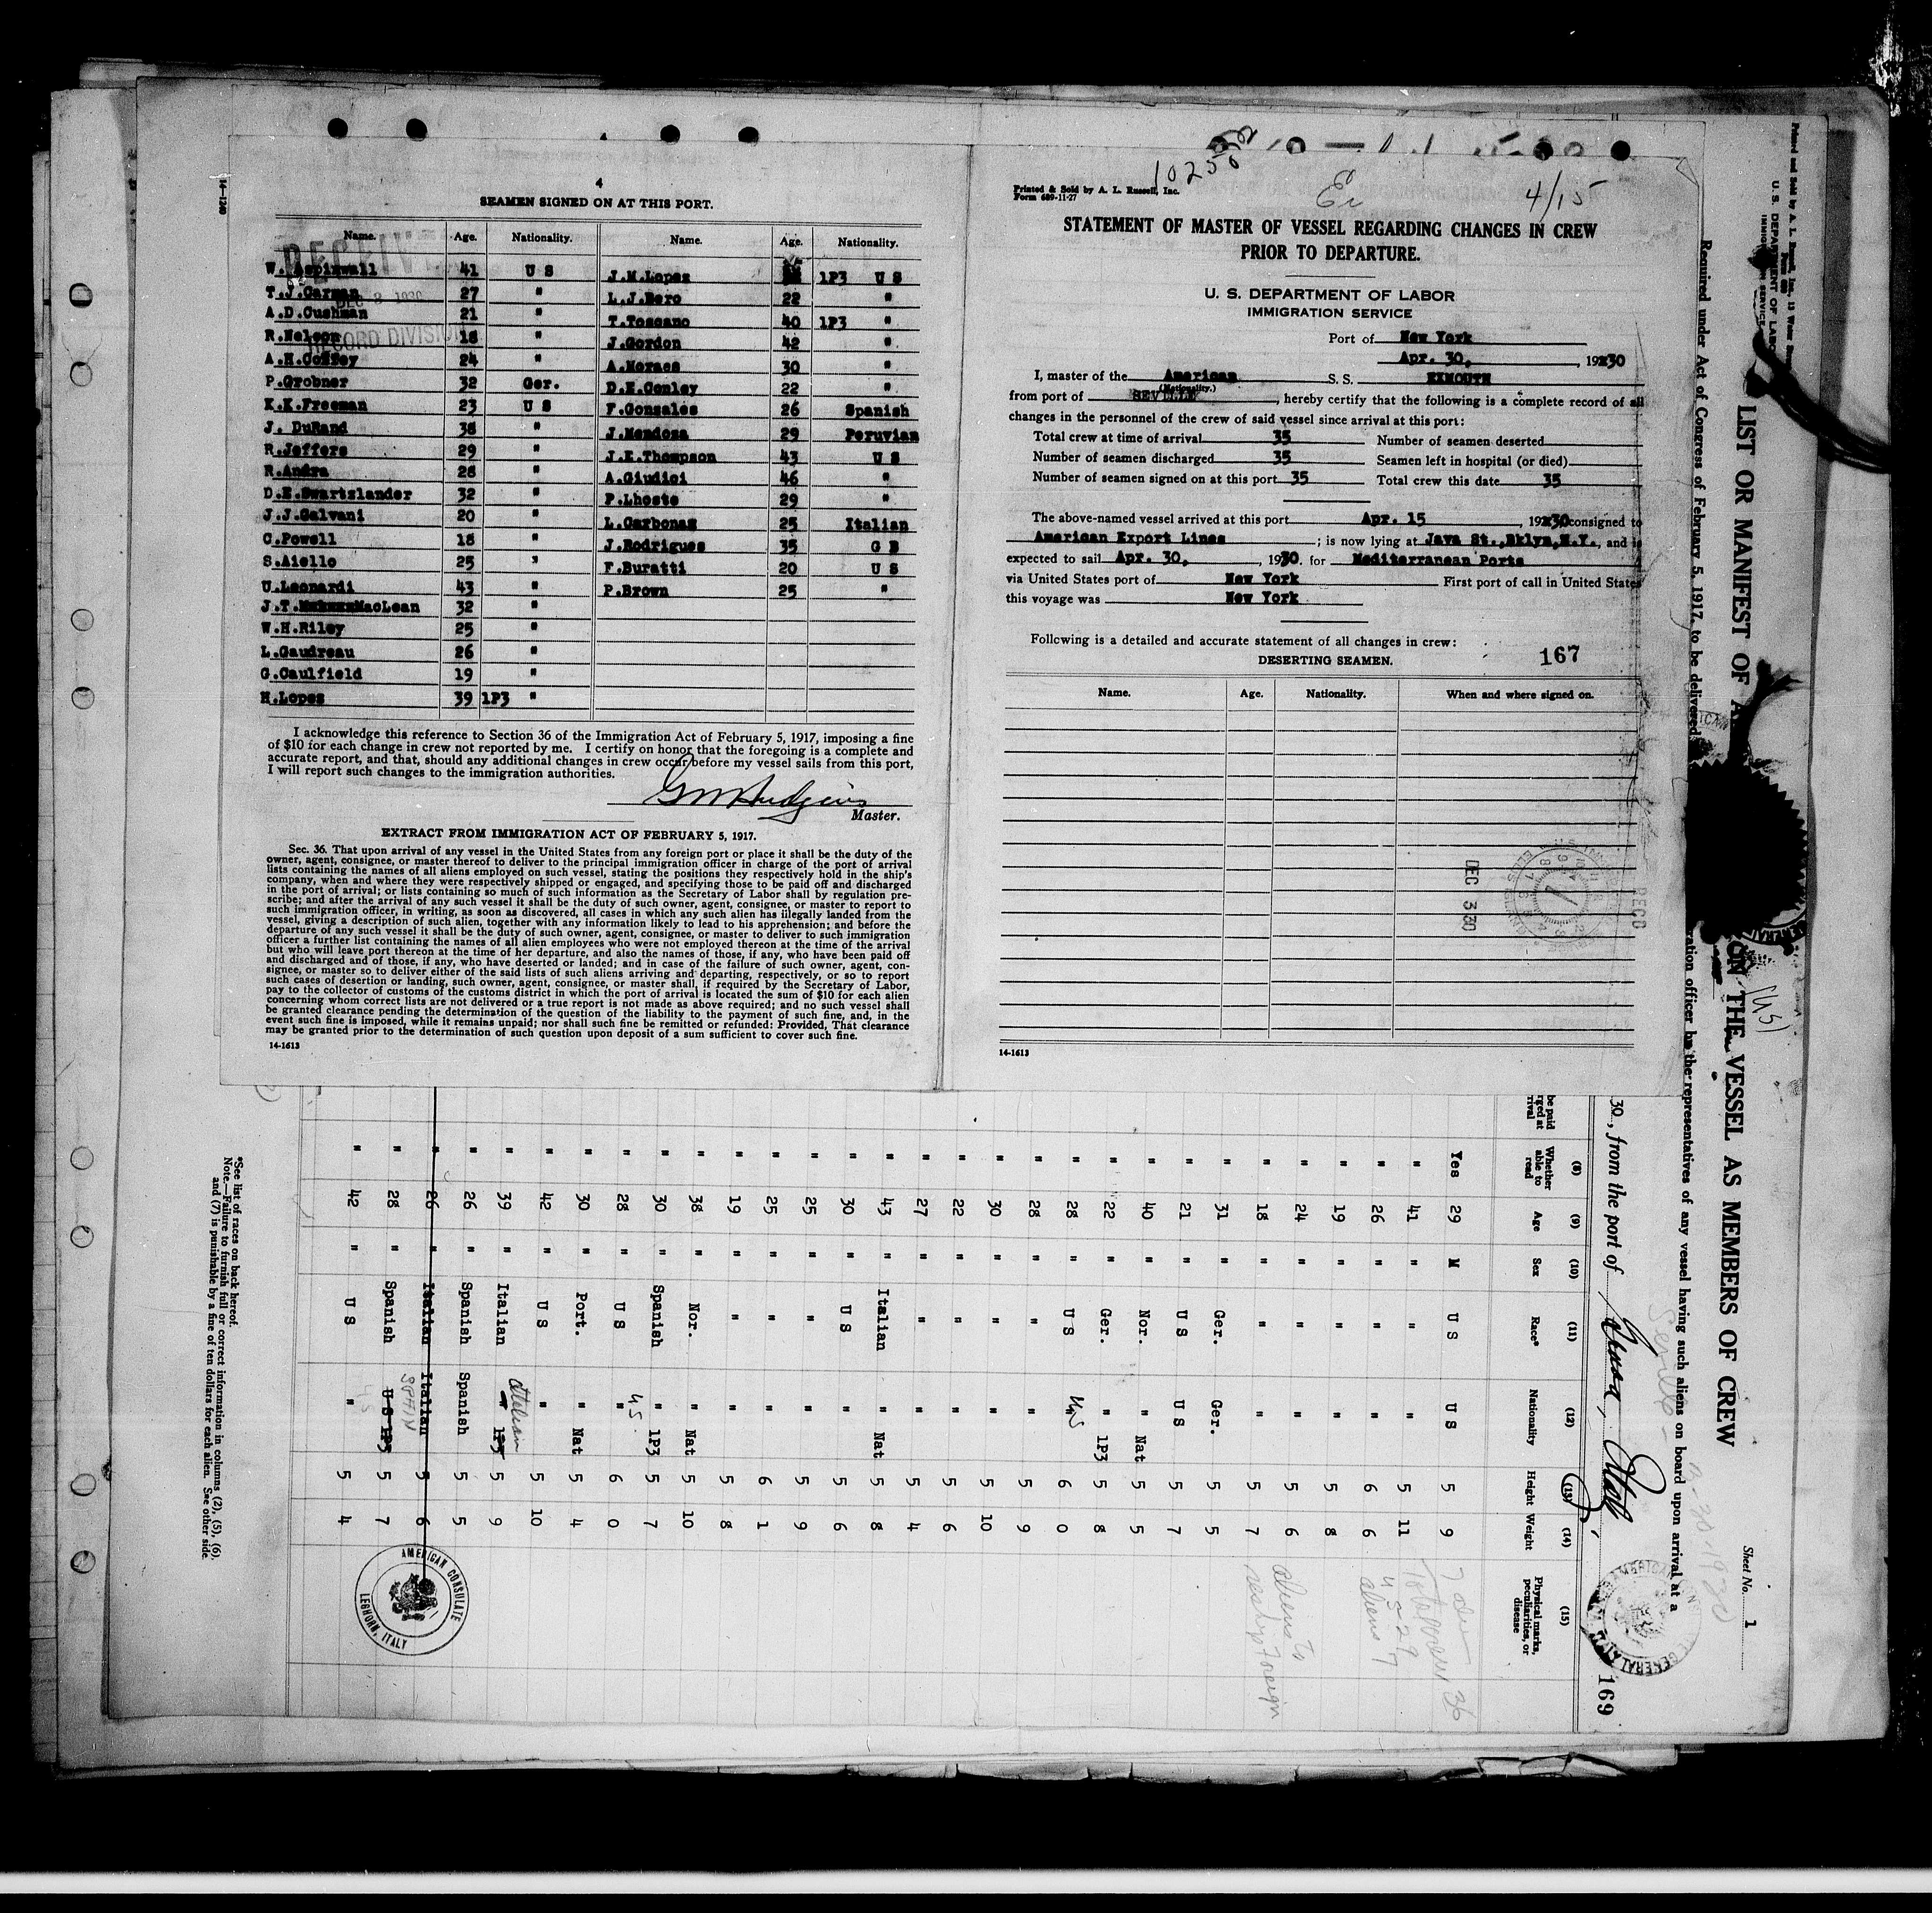 4
SEAMEN SIGNED ON AT THIS PORT.
Name. Age. Nationality. Name. Age. Nationality.
W. Aspinwall 41 U S J.M.Lopez 1P3 U S
T.J.Carman 27 " L.J.Bero 22 "
A.D.Cushman 21 " T.Toscano 40 1P3 "
R.Nelson 18 " J.Gordon 42 "
A.H.Coffey 24 " A.Moraes 30 "
P.Grobner 32 Ger. D.E.Conley 22 "
K.K.Freeman 23 U S F.Gonzales 26 Spanish
J. DuRand 38 " J.Mendoza 29 Peruvian
R.Jeffers 29 " J.E.Thompson 43 U S
R.Andra 28 " A.Giudici 46 "
D.E.Swartzlander 32 " P.Lhoste 29 "
J.J.Galvani 20 " L.Carbonas 25 Italian
C.Powell 18 " J.Rodrigues 35 G B
S.Aiello 25 " F.Buratti 20 U S
U.Leonardi 43 " P.Brown 25 "
J.T.MacLean 32 "
W.H.Riley 25 "
L.Gaudreau 26 "
G.Caulfield 19 "
H.Lopez 39 1P3 "
I acknowledge this reference to Section 36 of the Immigration Act of February 5, 1917, imposing a fine
of $10 for each change in crew not reported by me. I certify on honor that the foregoing is a complete and
accurate report, and that, should any additional changes in crew occur before my vessel sails from this port,
I will report such changes to the immigration authorities.
G M Hudgins
Master.
EXTRACT FROM IMMIGRATION ACT OF FEBRUARY 5, 1917.
Sec. 36. That upon arrival of any vessel in the United States from any foreign port or place it shall be the duty of the
owner, agent, consignee, or master thereof to deliver to the principal immigration officer in charge of the port of arrival
lists containing the names of all aliens employed on such vessel, stating the positions they respectively hold in the ship's
company, when and where they were respectively shipped or engaged, and specifying those to be paid off and discharged
in the port of arrival; or lists containing so much of such information as the Secretary of Labor shall by regulation pre-
scribe; and after the arrival of any such vessel it shall be the duty of such owner, agent, consignee, or master to report to
such immigration officer, in writing, as soon as discovered, all cases in which any such alien has illegally landed from the
vessel, giving a description of such alien, together with any information likely to lead to his apprehension; and before the
departure of any such vessel it shall be the duty of such owner, agent, consignee, or master to deliver to such immigration
officer a further list containing the names of all alien employees who were not employed thereon at the time of the arrival
but who will leave port thereon at the time of her departure, and also the names of those, if any, who have been paid off
and discharged and of those, if any, who have deserted or landed; and in case of the failure of such owner, agent, con-
signee, or master so to deliver either of the said lists of such aliens arriving and departing, respectively, or so to report
such cases of desertion or landing, such owner, agent, consignee, or master shall, if required by the Secretary of Labor,
pay to the collector of customs of the customs district in which the port of arrival is located the sum of $10 for each alien
concerning whom correct lists are not delivered or a true report is not made as above required; and no such vessel shall
be granted clearance pending the determination of the question of the liability to the payment of such fine, and, in the
event such fine is imposed, while it remains unpaid; nor shall such fine be remitted or refunded: Provided, That clearance
may be granted prior to the determination of such question upon deposit of a sum sufficient to cover such fine.
14-1613
14-1240
Printed & Sold by A. L. Russell, Inc.
Form 689-11-27
10250
4/15
STATEMENT OF MASTER OF VESSEL REGARDING CHANGES IN CREW
PRIOR TO DEPARTURE.
U. S. DEPARTMENT OF LABOR
IMMIGRATION SERVICE
Port of New York
Apr. 30, 1930
I, master of the American S. S. EXMOUTH
(Nationality.)
from port of SEVILLE, hereby certify that the following is a complete record of all
changes in the personnel of the crew of said vessel since arrival at this port:
Total crew at time of arrival 35 Number of seamen deserted
Number of seamen discharged 35 Seamen left in hospital (or died)
Number of seamen signed on at this port 35 Total crew this date 35
The above-named vessel arrived at this port Apr. 15, 1930 consigned to
American Export Lines; is now lying at Java St., Bklyn, N.Y., and is
expected to sail Apr. 30, 1930. for Mediterranean Ports
via United States port of New York First port of call in United States
this voyage was New York
Following is a detailed and accurate statement of all changes in crew:
DESERTING SEAMEN. 167
Name. Age. Nationality. When and where signed on.
DEC 3 30
RECD
14-1613
LIST OR MANIFEST OF ON THE VESSEL AS MEMBERS OF CREW
Required under Act of Congress of February 5, 1917, to be delivered officer by the representatives of any vessel having such aliens on board upon arrival at a
Sheet No. 1
30, from the port of Genoa, Italy
169
(8) (9) (10) (11) (12) (13) (14) (15)
Whether able to read Age Sex Race* Nationality Height Weight Physical marks, peculiarities, or disease
Yes 29 M U S U S 5 9
" 41 " " " 5 11
" 26 " " " 6 6
" 19 " " " 5 8
" 24 " " " 5 6
" 18 " " " 5 7
" 31 " Ger. Ger. 5 5
" 21 " U S U S 5 7
" 40 " Nor. " Nat 5 5
" 22 " Ger. " 1P3 5 8
" 28 " U S US 6 0
" 28 " " " 5 9
" 30 " " " 5 10
" 22 " " " 5 6
" 27 " " " 5 4
" 43 " Italian " Nat 5 8
" 30 " U S " 5 6
" 25 " " " 5 9
" 25 " " " 6 1
" 19 " " " 5 8
" 38 " Nor. " Nat 5 10
" 30 " Spanish " 1P3 5 7
" 28 " U S " US 6 0
" 30 " Port. " Nat 5 4
" 42 " U S " 5 10
" 39 " Italian " 1P3 Italian 5 9
" 26 " Spanish Spanish 5 5
" 26 " Italian Italian 5 6
" 28 " Spanish U S 1P3 SPAIN 5 7
" 42 " U S " 5 4
aliens to
reship foreign
AMERICAN CONSULATE
LEGHORN, ITALY
*See list of races on back hereof.
Note.—Failure to furnish full or correct information in columns (2), (5), (6),
and (7) is punishable by a fine of ten dollars for each alien. See other side.